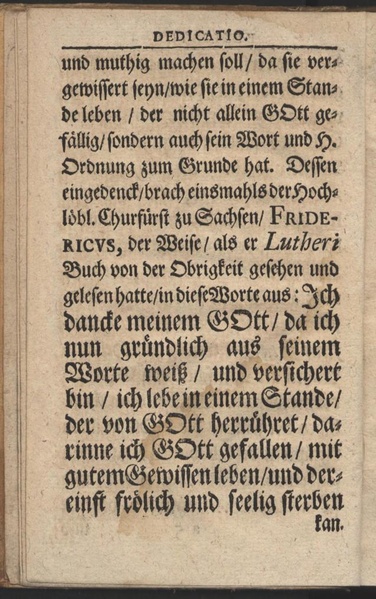 DEDICATIO.
und muthig machen soll/ da sie ver-
gewissert seyn/wie sie in einem Stan-
de leben / der nicht allein GOtt ge-
fällig/sondern auch sein Wort und H.
Ordnung zum Grunde hat. Dessen
eingedenck/brach einsmahls der Hoch-
löbl. Churfürst zu Sachsen/ FRIDE-
RICVS, der Weise/ als er Lutheri
Buch von der Obrigkeit gesehen und
gelesen hatte/in diese Worte aus: Ich
dancke meinem GOtt/ da ich
nun gründlich aus seinem
Worte weiß/ und versichert
bin / ich lebe in einem Stande/
der von GOtt herrühret/ da-
rinne ich GOtt gefallen/ mit
gutem Gewissen leben/und der-
einst frölich und seelig sterben
kan.